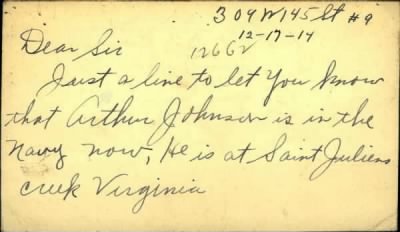 309 W 145 St #9
12-17-14
Dear Sir
12662
Just a line to let You know
that Arthur Johnson is in the
Navy now, He is at Saint Juliens
creek Virginia